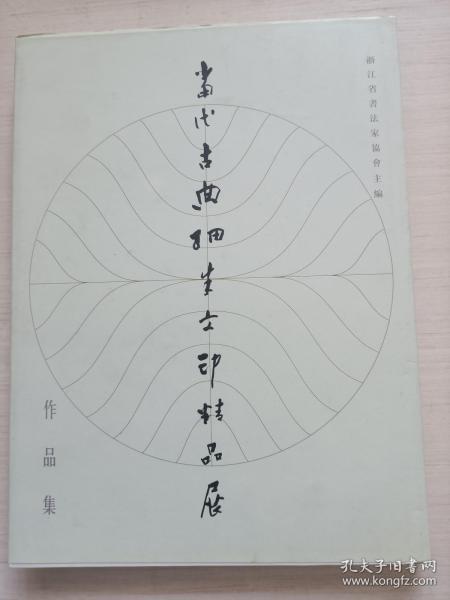 浙江省書法家協會主編
當代古典細朱文印精品展
作品集
孔夫子旧书网
www.kongfz.com